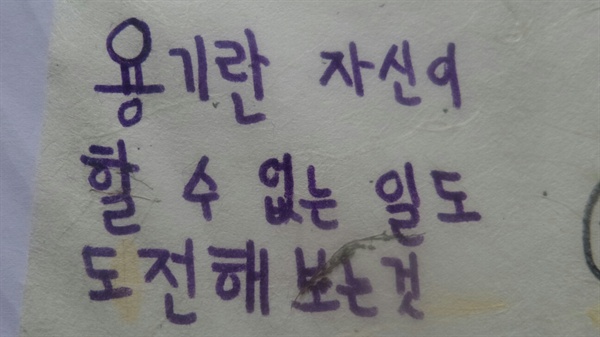 용기란 자신이
할 수 없는 일도
도전해 보는것